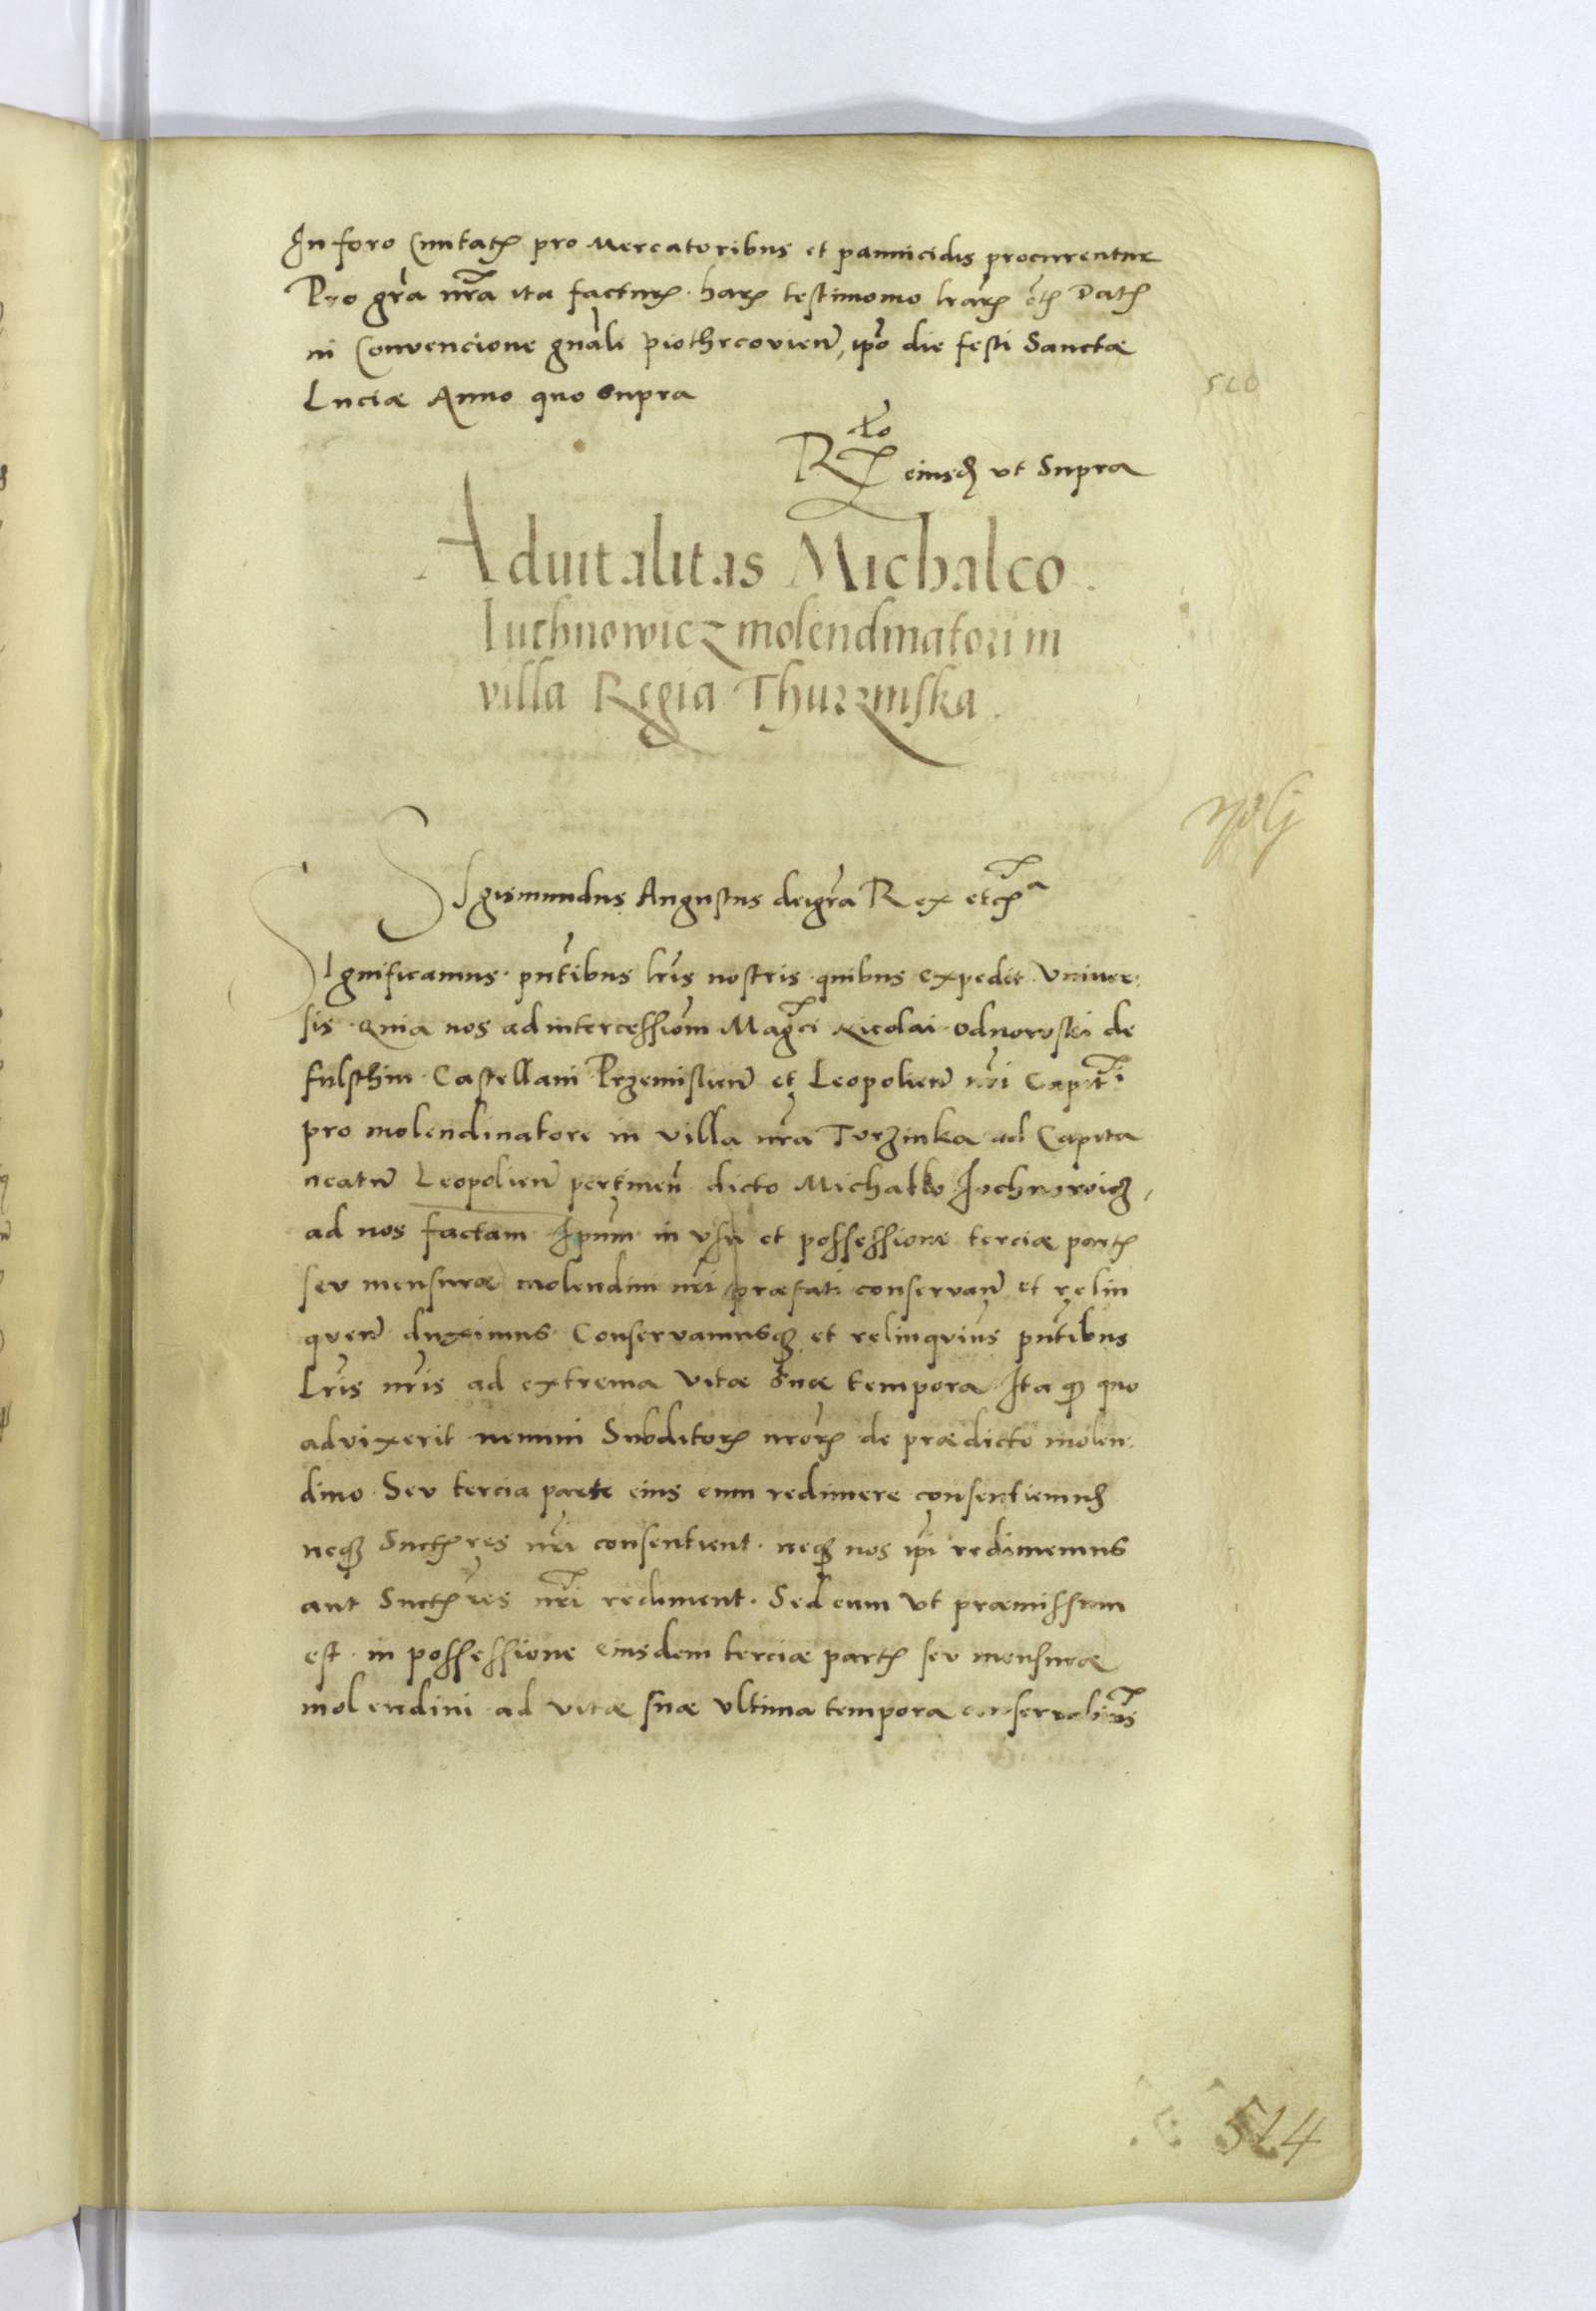 In foro Civitatꝭ pro Mercatoribus et pannicidis procurentur
Pro gr̃a nr̃a ita facturꝝ. harꝝ testimonio lr̃arꝝ etꝭ Datꝭ
in Convencione gnãli piothrcovien̄, ip̃o die festi Sanctæ
Luciæ Anno quo supra
510
Rͣtͦ eiusdꝫ vt Supra
Advitalitas Michalco
Iuchnowicz molendinatori in
villa Regia Thurzinska.
Sigismundus Augustus dei gr̃a Rex etcꝭ
Significamus pñtibus lr̃is nostris quibus expedit Univer-
sis. Quia nos ad intercessiom̃ Mag̃ci Nicolai Odnowski de
fulsthin Castellani Przemislien̄ et Leopolien̄ nr̃i Capitⁱ
pro molendinatore in villa nr̃a Turzinka ad Capita
neatū Leopolien̄ pertinen̄ dicto Michalko Iuchnowicz,
ad nos factam Ip̃um in usu et possessione terciæ partꝭ
seu mensuræ molendini nr̃i præfati conservan̄ et relin
quen̄ duximus. Conservamusqꝫ et relinquim̃s pñtibus
Lr̃is nr̃is ad extrema vitæ suæ tempora. Ita qꝫ quo
advixerit nemini Subditorꝝ nr̃orꝝ de prædicto molen-
dino. Seu tercia parte eius eum redimere consentiemus
neqꝫ Succꝭres nr̃i consentient. neqꝫ nos ip̃i redimemus
aut Succꝭres nr̃i rediment. Sed eum ut præmissum
est. in possessione eiusdem terciæ partꝭ seu mensuræ
molendini ad vitæ suæ ultima tempora conservabim̃s
514